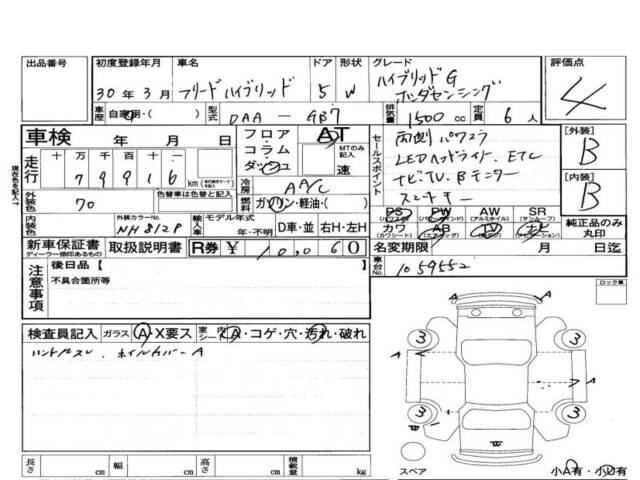 出品番号
初度登録年月
30年3月
車名
フリードハイブリッド
ドア
5
形状
W
グレード
ハイブリッドG
ホンダセンシング
評価点
4
車歴
自家用・( )
型式
DAA-GB7
排気量
1500 cc
定員
6人
車検
年 月 日
フロア・コラム・ダッシュ
AT
MTのみ記入
速
セールスポイント
両側パワスラ
LEDヘッドライト.ETC
ナビTV.Bモニター
スマートキー
[外装]
B
[内装]
B
現在色を記入→
走行
十万千百十一
79916
km
冷房
AAC
外装色
70
色替車は色替と記入
燃料
ガソリン・軽油・( )
PS
(パワステ)
PW
(パワーウインド)
AW
(アルミホイル)
SR
(サンルーフ)
カワ
(カワシート)
AB
(エアバッグ)
TV
ナビ
(ナビゲーション)
純正品のみ丸印
内装色
外装カラーNo.
NH812P
輸入車
モデル年式
年・不明
D車・並
右H・左H
新車保証書
ディーラー捺印あるもの
取扱説明書
R券
¥10,060
名変期限
月 日迄
車台No.
1059552
注意事項
後日品[ ]
不具合箇所等
ロック車
検査員記入
ガラス
A・X要ス
室内シート
A・コゲ・穴・汚れ・破れ
ホイルカバーA
A
A
A
3
3
3
3
スペア
小A有・小U有
長さ
cm
幅
cm
高さ
cm
積載量
kg